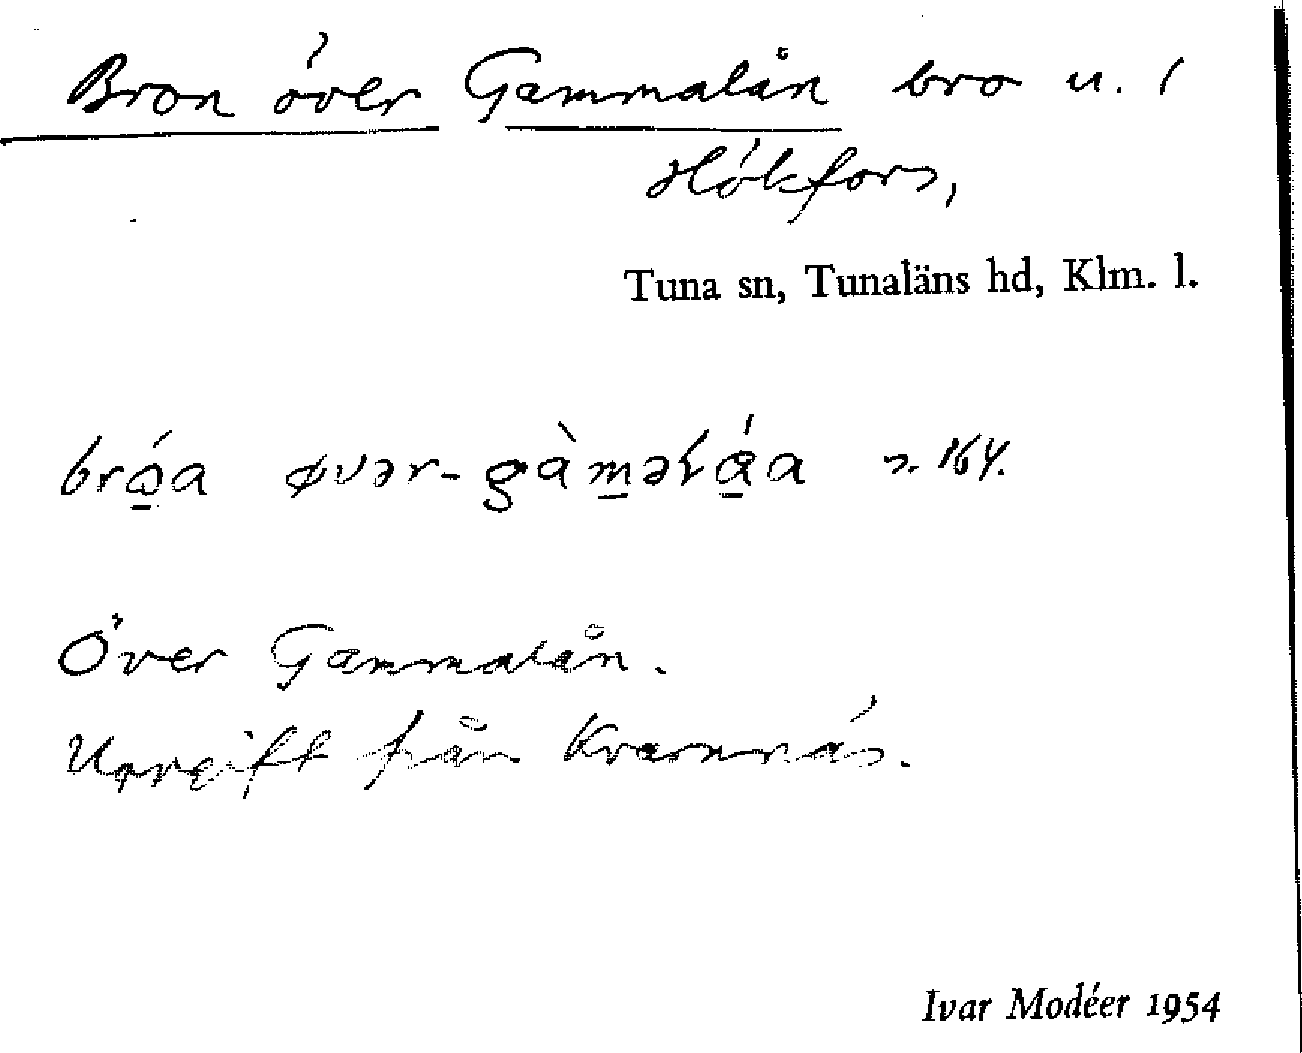 Bron över Gammalån bro u. /
Hökfors,
Tuna sn, Tunaläns hd, Klm. l.
brǫ́a øvər-gàm̲əɫá̲a s. 164.
Över Gammalån.
Uppgift från Kvarnnäs.
Ivar Modéer 1954